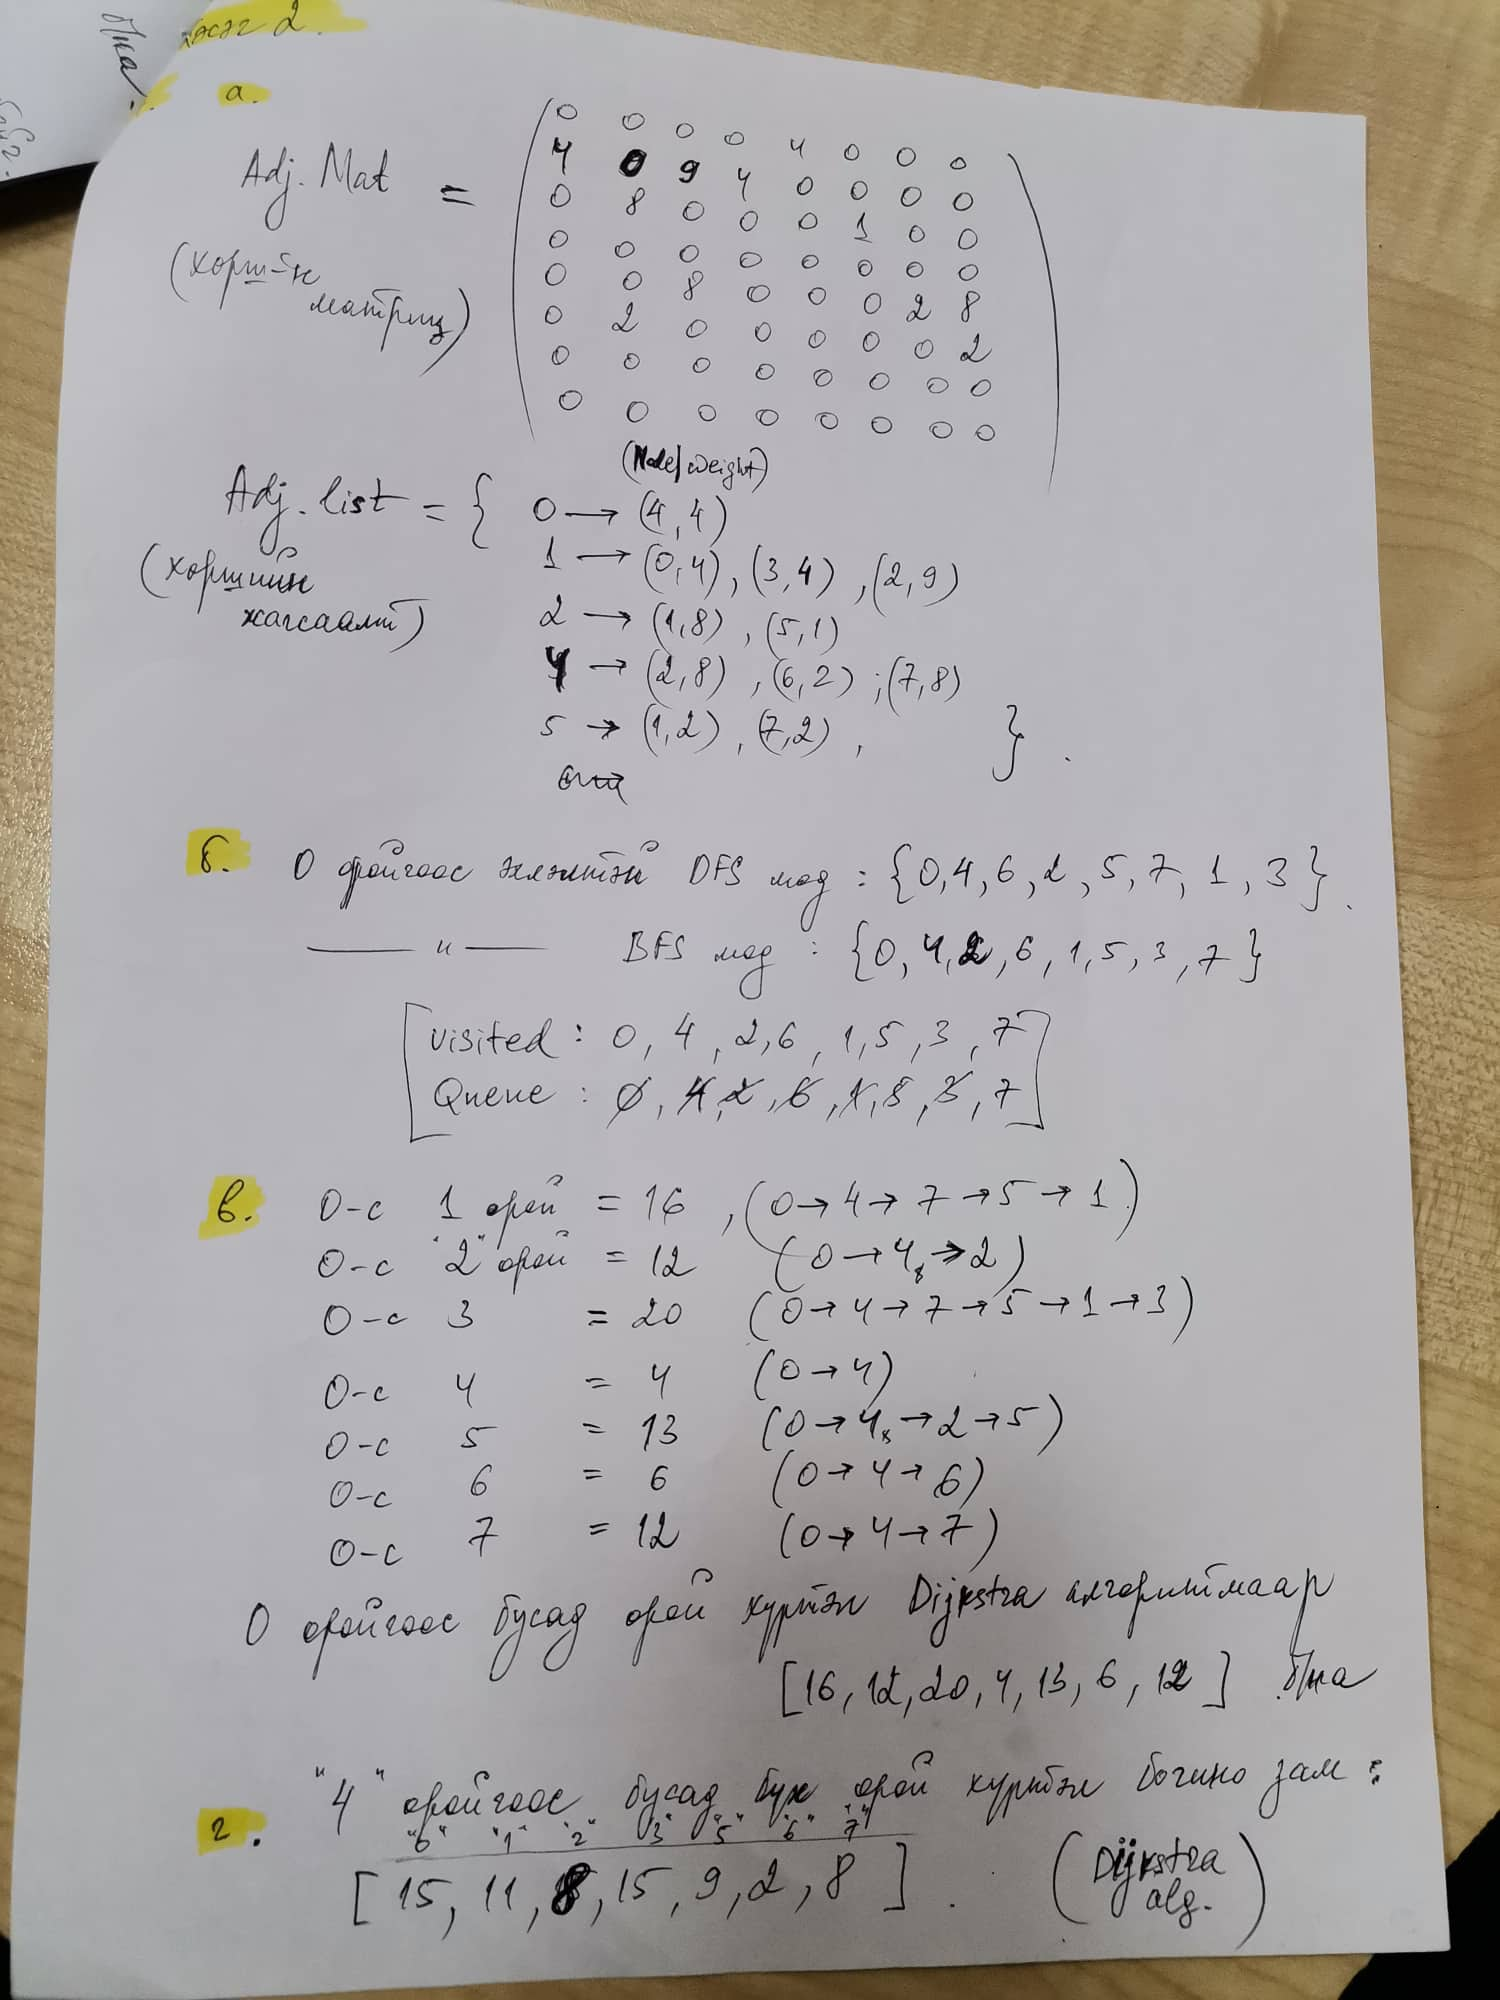 хэсэг 2.
а.
Adj. Mat =
(хорш-йн
матриц)
0 0 0 0 4 0 0 0
4 0 9 4 0 0 0 0
0 8 0 0 0 1 0 0
0 0 0 0 0 0 0 0
0 0 8 0 0 0 2 8
0 2 0 0 0 0 0 2
0 0 0 0 0 0 0 0
0 0 0 0 0 0 0 0
(Node/weight)
Adj. list = { 0 → (4, 4)
(хоршийн
жагсаалт)
1 → (0,4), (3,4), (2,9)
2 → (1,8), (5,1)
4 → (2,8), (6,2); (7,8)
5 → (1,2), (7,2), } .
б. 0 оройгоос эхлэлтэй DFS мод : {0,4,6,2,5,7,1,3}.
—— " —— BFS мод : {0,4,2,6,1,5,3,7}
[visited : 0, 4, 2,6, 1,5,3,7
Queue : 0, 4,2,6,1,5,3,7]
в. 0-с 1 орой = 16, (0→4→7→5→1)
0-с "2" орой = 12 (0→4→2)
0-с 3 = 20 (0→4→7→5→1→3)
0-с 4 = 4 (0→4)
0-с 5 = 13 (0→4→2→5)
0-с 6 = 6 (0→4→6)
0-с 7 = 12 (0→4→7)
0 оройгоос бусад орой хүртэл Dijkstra алгоритмаар
[16, 12, 20, 4, 13, 6, 12] б/на
"4" оройгоос бусад бүх орой хүртэл богино зам :
г. "0" "1" "2" "3" "5" "6" "7"
[15, 11, 8, 15, 9, 2, 8] . (Dijkstra
alg.)